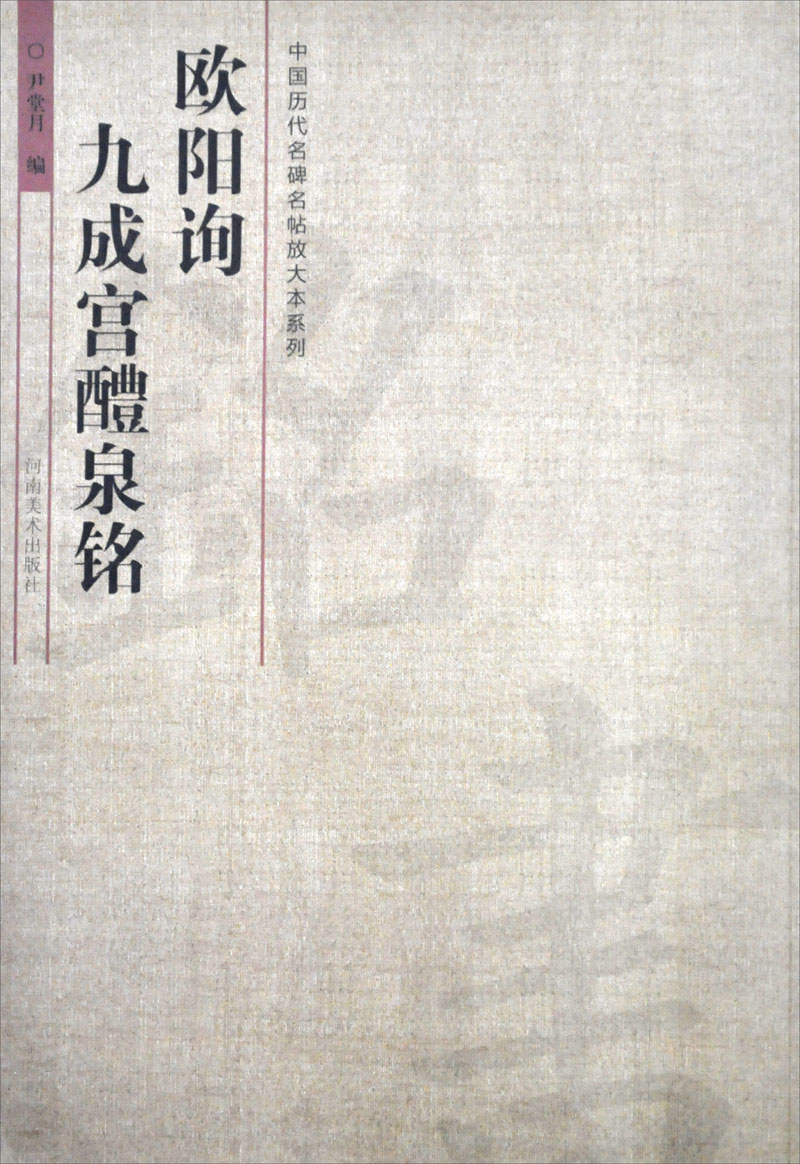 中国历代名碑名帖放大本系列
欧阳询
九成宫醴泉铭
○ 尹堂月 编
河南美术出版社